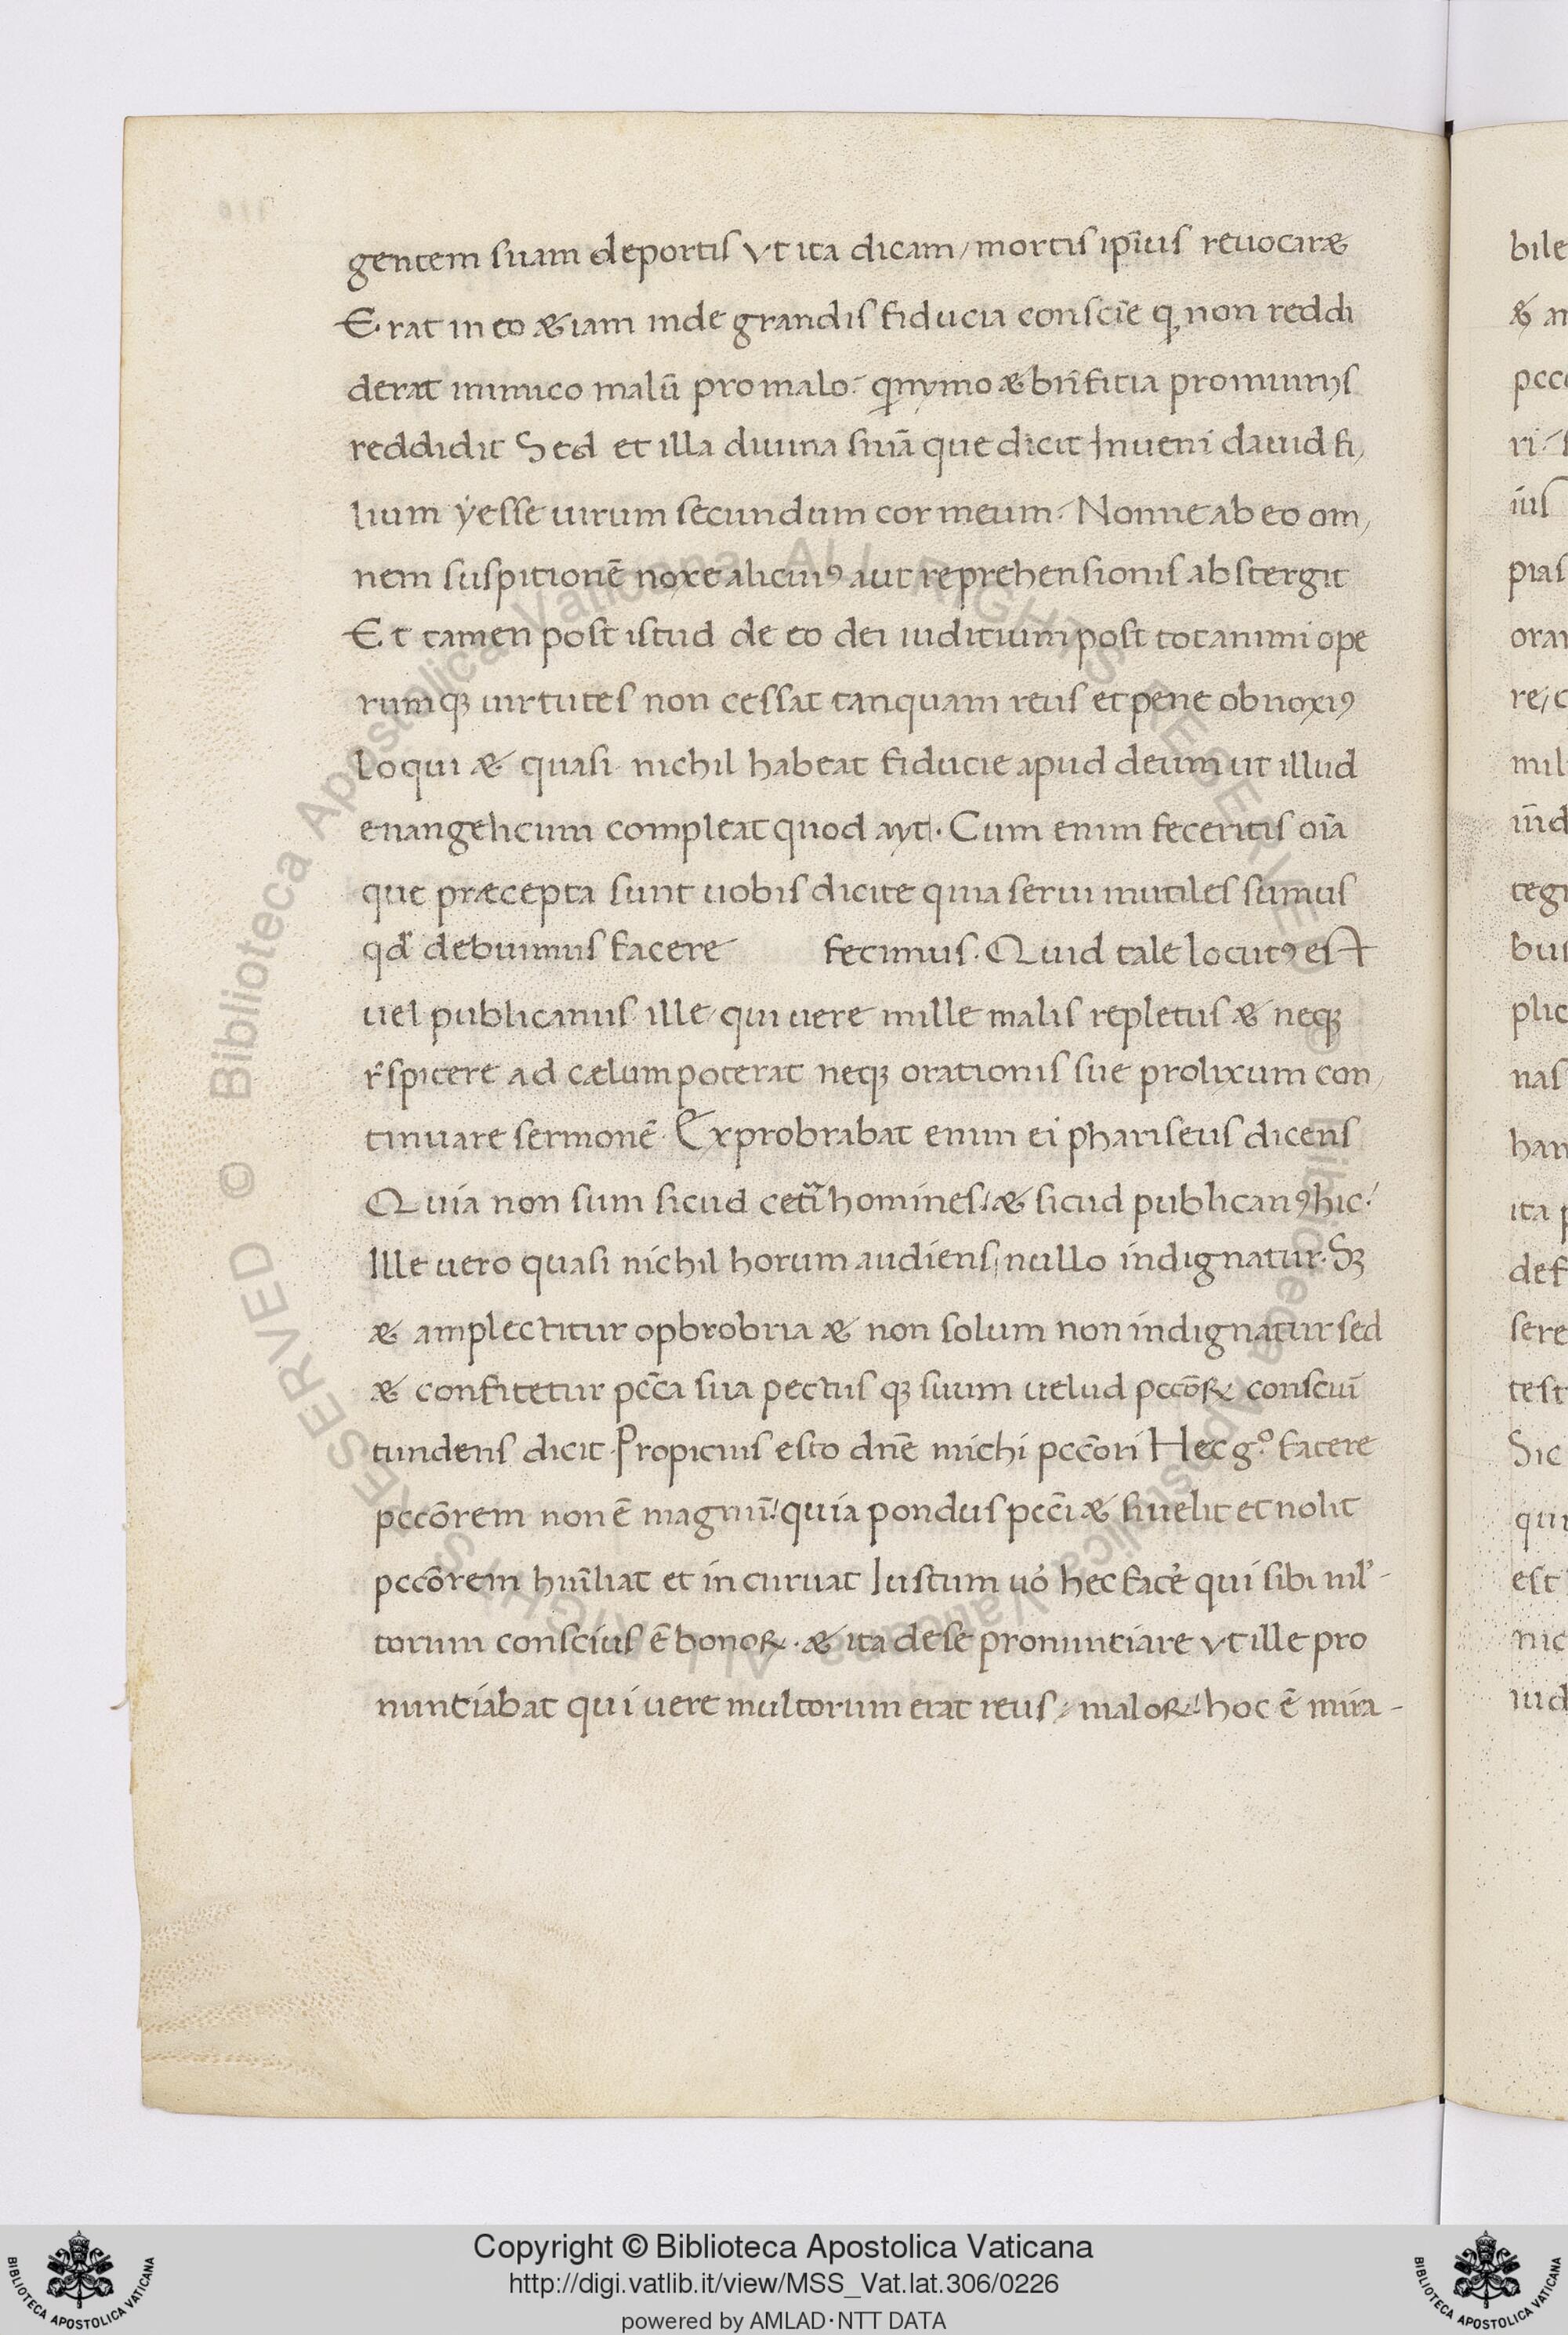 gentem suam deportis vt ita dicam / mortis ip̄ius reuocaræ
Erat in eo æiam inde grandis fiducia consciē q non reddi
derat inimico malū pro malo. qinymo æ bn̄fitia pro iniurijs
reddidit Sed et illa diuina sn̄ia que dicit Inueni dauid fi,
lium yesse uirum secundum cor meum. Nonne ab eo om,
nem suspitionē noxe alicuiꝯ aut reprehensionis abstergit
Et tamen post istud de eo dei iuditium post tot animi ope
rumqꝫ uirtutes non cessat tanquam reus et pene obnoxiꝯ
loqui æ quasi nichil habeat fiducie apud deum ut illud
euangelicum compleat quod ayt. Cum enim feceritis oīa
que præcepta sunt uobis dicite quia serui inutiles sumus
qd' debuimus facere fecimus. Quid tale locutꝯ est
uel publicanus ille qui uere mille malis repletus æ neqꝫ
r̄spicere ad cælum poterat neqꝫ orationis sue prolixum con,
tinuare sermonē. Exprobrabat enim ei phariseus dicens
Quia non sum sicud ceti homines / æ sicud publicanꝯ hic.
Ille uero quasi nichil horum audiens nullo indignatur. Sꝫ
æ amplectitur opbrobria æ non solum non indignatur sed
æ confitetur pcc̄a sua pectus qꝫ suum uelud pccōꝝ consciū
tundens dicit Propicius esto dn̄e michi pccōri Hec g.º facere
pccōrem non ē magnū! quia pondus pcc̄i æ si uelit et nolit
pccōrem humīliat et incuruat Iustum uo̓ hec face̓ qui sibi ml'-
torum conscius ē bonoꝝ. æ ita de se pronuntiare vt ille pro
nuntiabat qui uere multorum erat reus / maloꝝ! hoc ē mira-
bile
æ
ri
ius
pias
re/
mil
bus
plic
nas
ita
def
sere
test
Sic
qui
est
nic
Copyright © Biblioteca Apostolica Vaticana
http://digi.vatlib.it/view/MSS_Vat.lat.306/0226
powered by AMLAD·NTT DATA
BIBLIOTECA APOSTOLICA VATICANA
BIBLIOTECA APOSTOLICA VATICANA
© Biblioteca Apostolica Vaticana ALL RIGHTS RESERVED © Biblioteca Apostolica Vaticana ALL RIGHTS RESERVED